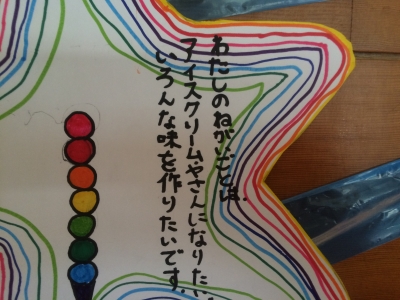 わたしのねがいごとは、
アイスクリームやさんになりたい
いろんな味を作りたいです。